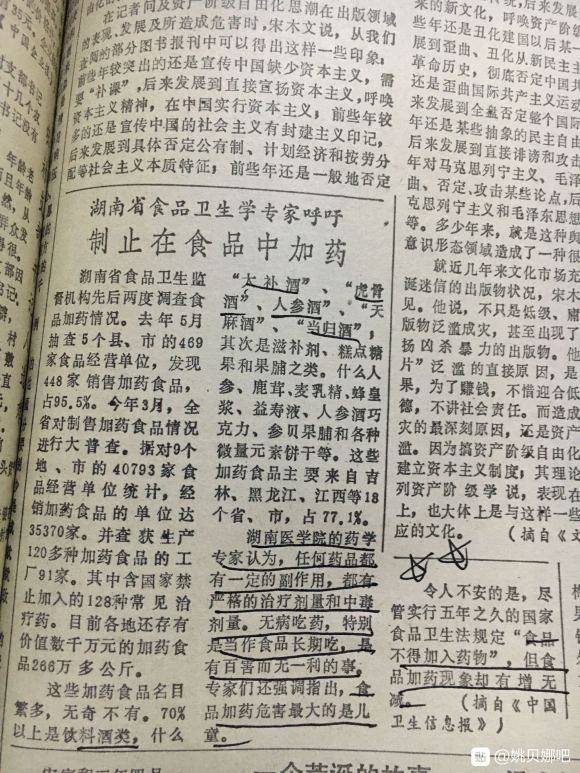 在记者问及资产阶级自由化思潮在出版领域
的表现、发展及所造成危害时，宋木文说，从我们
查阅的部分图书报刊中可以得出这样一些印象：
前些年较突出的还是宣传中国缺少资本主义，需
要“补课”，后来发展到直接宣扬资本主义，呼唤
资本主义精神，在中国实行资本主义；前些年较
多的还是宣传中国的社会主义有封建主义印记，
后来发展到具体否定公有制、计划经济和按劳分
配等社会主义本质特征；前些年还是一般地否定
湖南省食品卫生学专家呼吁
制止在食品中加药
湖南省食品卫生监
督机构先后两度调查食
品加药情况。去年5月
抽查5个县、市的469
家食品经营单位，发现
448家销售加药食品，
占95.5%。今年3月，全
省对制售加药食品情况
进行大普查。据对9个
地、市的40793家食
品经营单位统计，经
销加药食品的单位达
35370家。并查获生产
120多种加药食品的工
厂91家。其中含国家禁
止加入的128种常见治
疗药。目前各地还存有
价值数千万元的加药食
品266万多公斤。
这些加药食品名目
繁多，无奇不有。70%
以上是饮料酒类，什么
“大补酒”、“虎骨
酒”、人参酒”、“天
麻酒”、“当归酒”，
其次是滋补剂、糕点糖
果和果脯之类。什么人
参、鹿茸、麦乳精、蜂皇
浆、益寿液、人参酒巧
克力、参贝果脯和各种
微量元素饼干等。这些
加药食品主要来自吉
林、黑龙江、江西等18
个省、市，占77.1%。
湖南医学院的药学
专家认为，任何药品都
有一定的副作用，都有
严格的治疗剂量和中毒
剂量。无病吃药，特别
是当作食品长期吃，是
有百害而无一利的事，
专家们还强调指出，食
品加药危害最大的是儿
童。
令人不安的是，尽
管实行五年之久的国家
食品卫生法规定“食品
不得加入药物”，但食
品加药现象却有增无
减。（摘自《中国
卫生信息报》）
来的新文化，呼唤资产阶级
年还是丑化建国以后某一
展到歪曲、丑化从新民主主
革命历史，彻底否定中国共
还是歪曲国际共产主义运动
来发展到全盘否定整个国际
年还是某些抽象的民主自由
来发展到直接诽谤和攻击
年对马克思列宁主义、毛
曲、否定、攻击某些论点，后
克思列宁主义和毛泽东思想
等。多少年来，就是这种舆
意识形态领域造成了一种很
就近几年来文化市场充
诞迷信的出版物状况，宋木
见。他说，不只是低级、庸
版物泛滥成灾，甚至出现了
扬凶杀暴力的出版物。他
片”泛滥的直接原因，是
果，为了赚钱，不惜迎合低
德，不讲社会责任。而造成
灾的最深刻原因，还是资产
滥。因为搞资产阶级自由化
建立资本主义制度；其理论
列资产阶级学说，表现在
上，也大体上是与这样一些
应的文化。（摘自《文
一个荒诞的故事
@姚贝娜吧